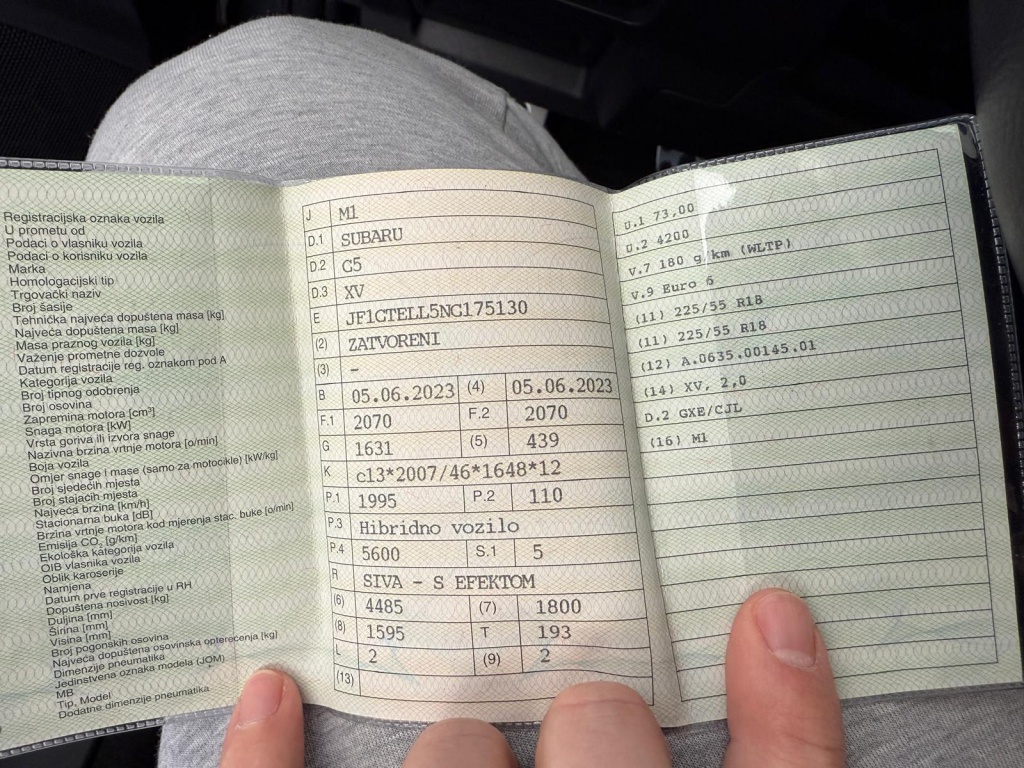 Registracijska oznaka vozila
U prometu od
Podaci o vlasniku vozila
Podaci o korisniku vozila
Marka
Homologacijski tip
Trgovački naziv
Broj šasije
Tehnička najveća dopuštena masa [kg]
Najveća dopuštena masa [kg]
Masa praznog vozila [kg]
Važenje prometne dozvole
Datum registracije reg. oznakom pod A
Kategorija vozila
Broj tipnog odobrenja
Broj osovina
Zapremina motora [cm³]
Snaga motora [kW]
Vrsta goriva ili izvora snage
Nazivna brzina vrtnje motora [o/min]
Boja vozila
Omjer snage i mase (samo za motocikle) [kW/kg]
Broj sjedećih mjesta
Broj stajaćih mjesta
Najveća brzina [km/h]
Stacionarna buka [dB]
Brzina vrtnje motora kod mjerenja stac. buke [o/min]
Emisija CO₂ [g/km]
Ekološka kategorija vozila
OIB vlasnika vozila
Oblik karoserije
Namjena
Datum prve registracije u RH
Dopuštena nosivost [kg]
Duljina [mm]
Širina [mm]
Visina [mm]
Broj pogonskih osovina
Najveća dopuštena osovinska opterećenja [kg]
Dimenzije pneumatika
Jedinstvena oznaka modela (JOM)
MB
Tip, Model
Dodatne dimenzije pneumatika
J M1
D.1 SUBARU
D.2 C5
D.3 XV
E JF1GTELL5NG175130
(2) ZATVORENI
(3) -
B 05.06.2023 (4) 05.06.2023
F.1 2070 F.2 2070
G 1631 (5) 439
K c13*2007/46*1648*12
P.1 1995 P.2 110
P.3 Hibridno vozilo
P.4 5600 S.1 5
R SIVA - S EFEKTOM
(6) 4485 (7) 1800
(8) 1595 T 193
L 2 (9) 2
(13)
U.1 73,00
U.2 4200
V.7 180 g/km (WLTP)
V.9 Euro 6
(11) 225/55 R18
(11) 225/55 R18
(12) A.0635.00145.01
(14) XV, 2,0
D.2 GXE/CJL
(16) M1